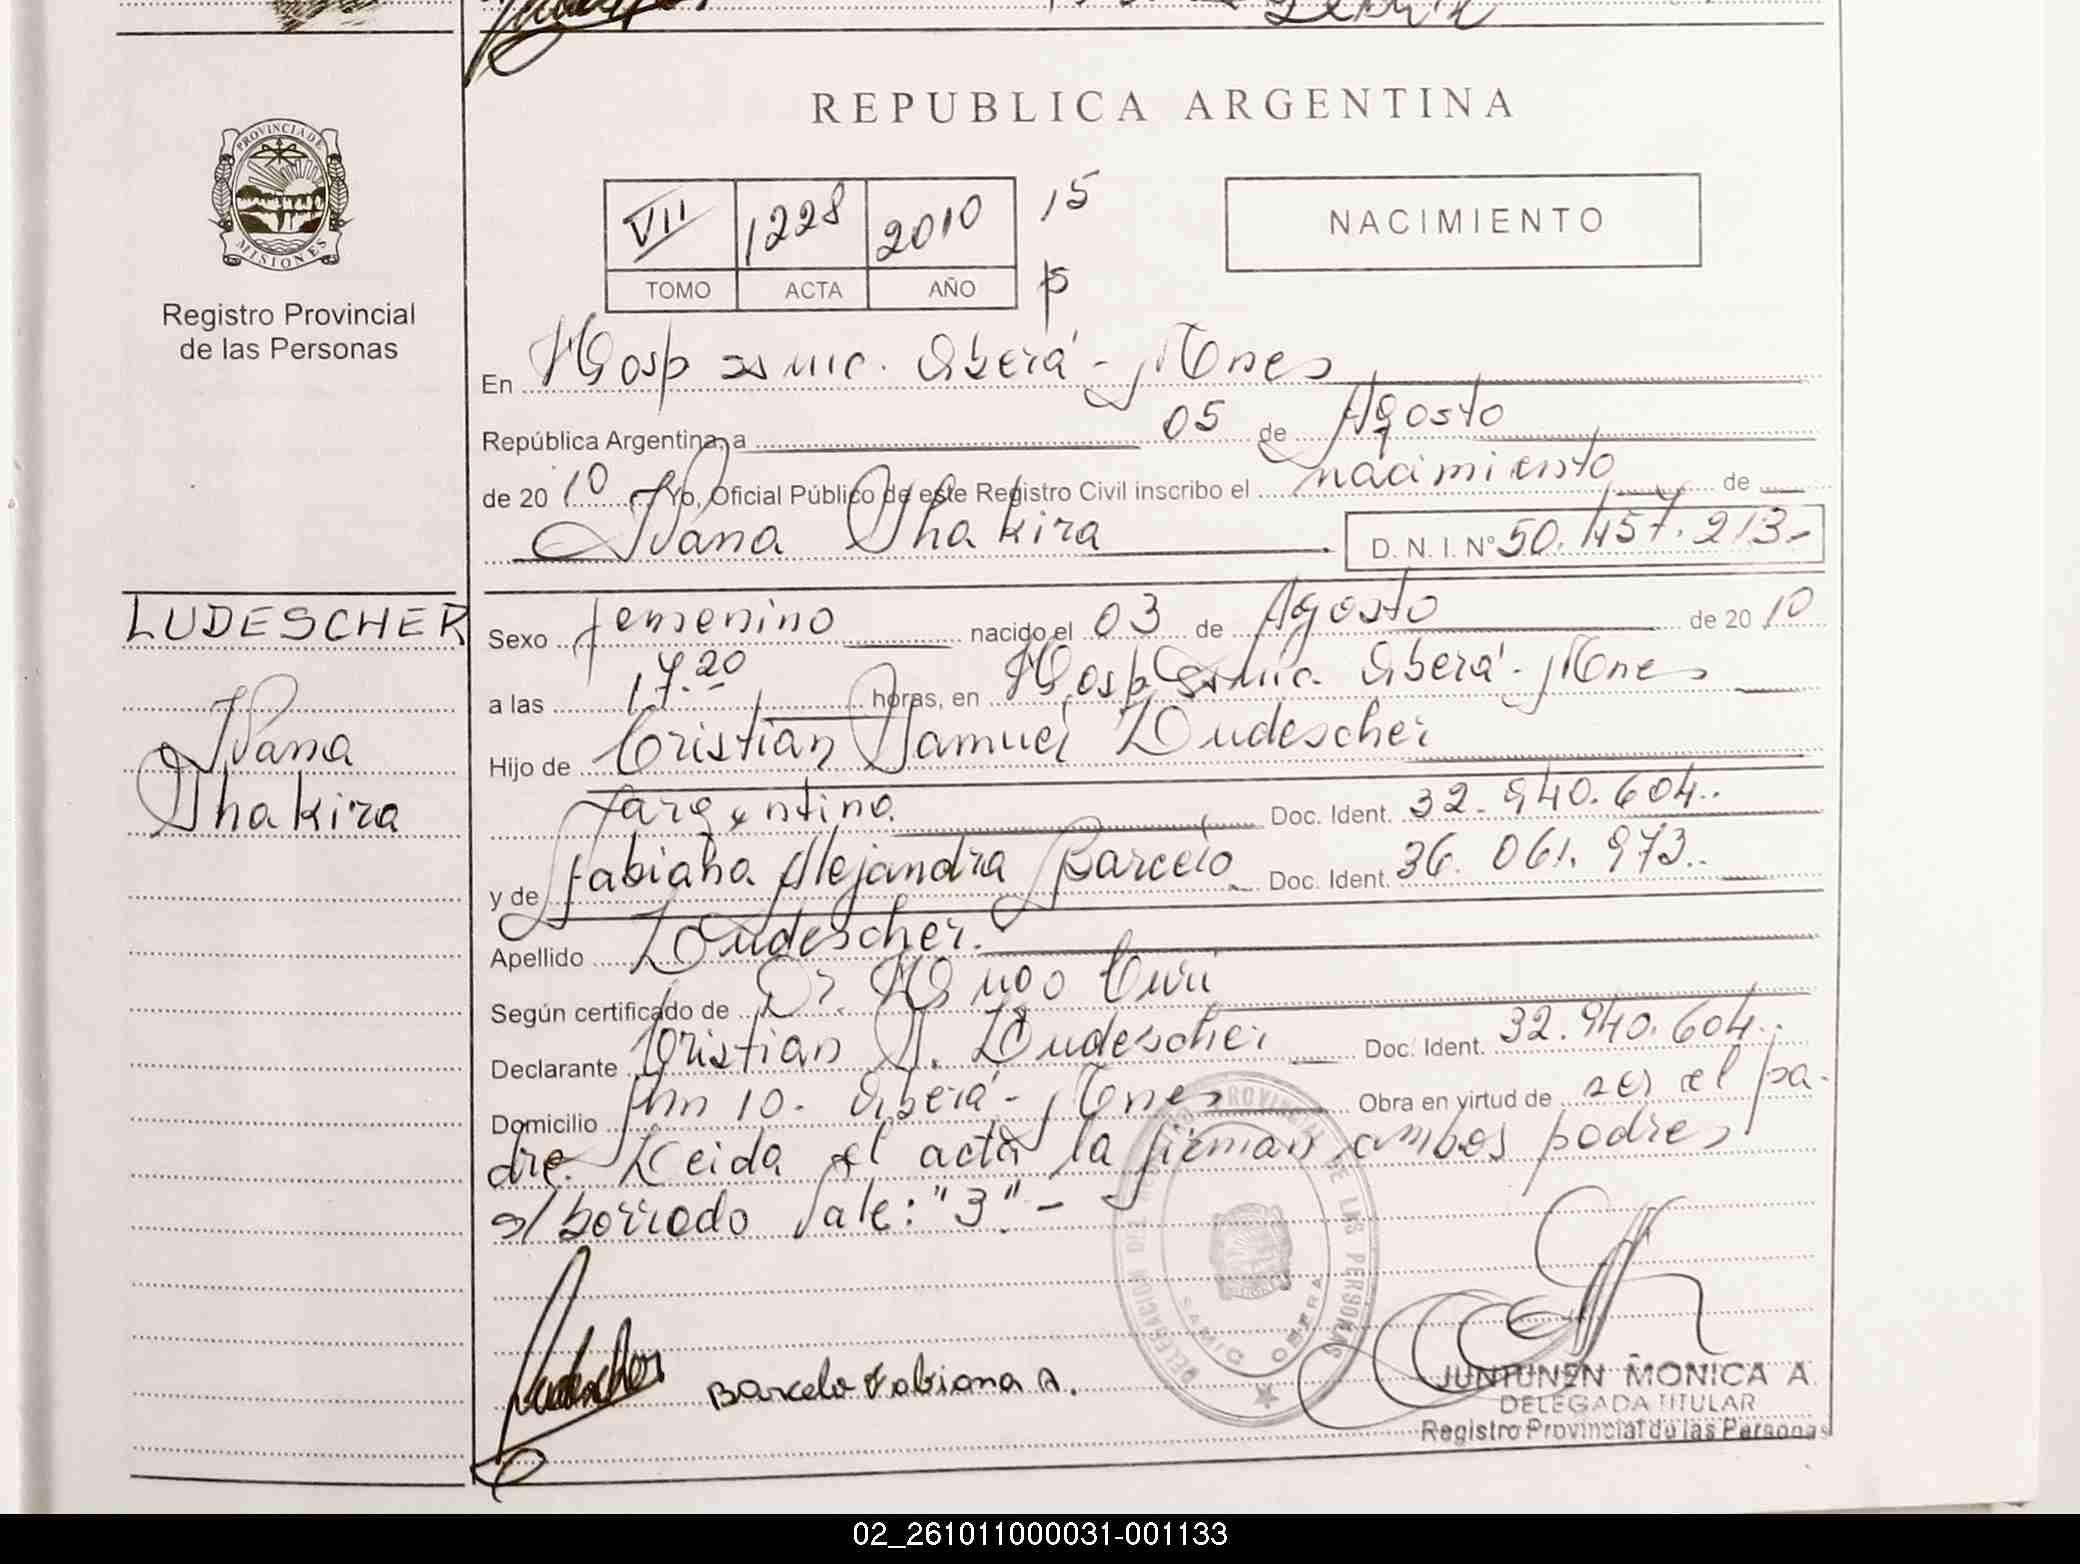 REPUBLICA ARGENTINA
PROVINCIA DE
MISIONES
Registro Provincial
de las Personas
VII 1228 2010 15
TOMO ACTA AÑO
NACIMIENTO
En Hosp Samic. Oberá - Mnes
República Argentina, a 05 de Agosto
de 20 10 Yo, Oficial Público de este Registro Civil inscribo el nacimiento de
Ivana Shakira D. N. I. N° 50.457.213.-
LUDESCHER
Ivana
Shakira
Sexo femenino nacido el 03 de Agosto de 20 10
a las 17.20 horas, en Hosp Samic. Oberá - Mnes
Hijo de Cristian Samuel Ludescher
argentino. Doc. Ident. 32.940.604..
y de Fabiana Alejandra Barcelo Doc. Ident. 36.061.973..
Apellido Ludescher.
Según certificado de Dr. Hugo Curi
Declarante Cristian S. Ludescher Doc. Ident. 32.940.604..
Domicilio Km 10. Oberá - Mnes Obra en virtud de ser el pa-
dre. Leida el acta la firman ambos padres
s/borrado Vale: "3" -
DELEGACION DEL REGISTRO PROVINCIAL DE LAS PERSONAS
SAMIC OBERA
Ludescher
Barcelo Fabiana A.
JUNTUNEN MONICA A.
DELEGADA TITULAR
Registro Provincial de las Personas
02_261011000031-001133